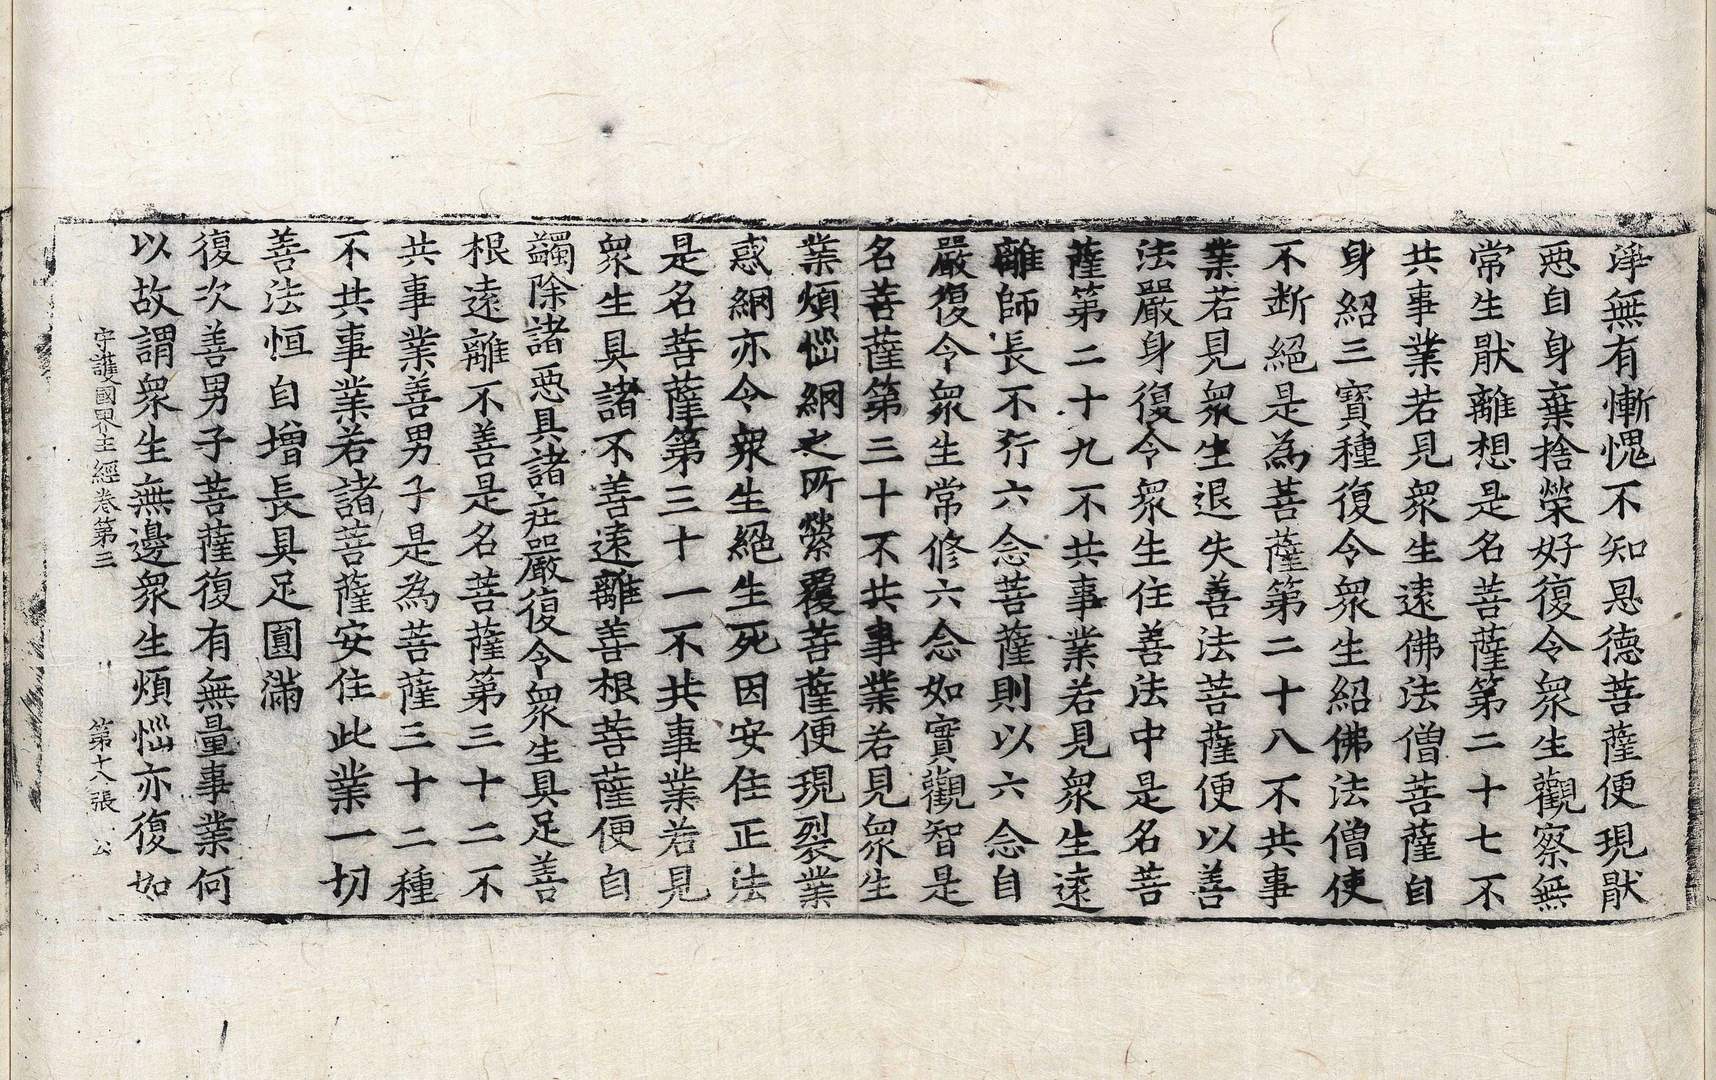 淨無有慚愧不知恩德菩薩便現猒
惡自身棄捨榮好復令衆生觀察無
常生猒離想是名菩薩第二十七不
共事業若見衆生遠佛法僧菩薩自
身紹三寶種復令衆生紹佛法僧使
不断絕是為菩薩第二十八不共事
業若見衆生退失善法菩薩便以善
法嚴身復令衆生住善法中是名菩
薩第二十九不共事業若見衆生遠
離師長不行六念菩薩則以六念自
嚴復令衆生常修六念如實觀智是
名菩薩第三十不共事業若見衆生
業煩惱網之所縈覆菩薩便現裂業
惑網亦令衆生絕生死因安住正法
是名菩薩第三十一不共事業若見
衆生具諸不善遠離善根菩薩便自
蠲除諸惡具諸庄嚴復令衆生具足善
根遠離不善是名菩薩第三十二不
共事業善男子是為菩薩三十二種
不共事業若諸菩薩安住此業一切
善法恒自增長具足圓滿
復次善男子菩薩復有無量事業何
以故謂衆生無邊衆生煩惱亦復如
守護國界主經卷第三 第十八張 公